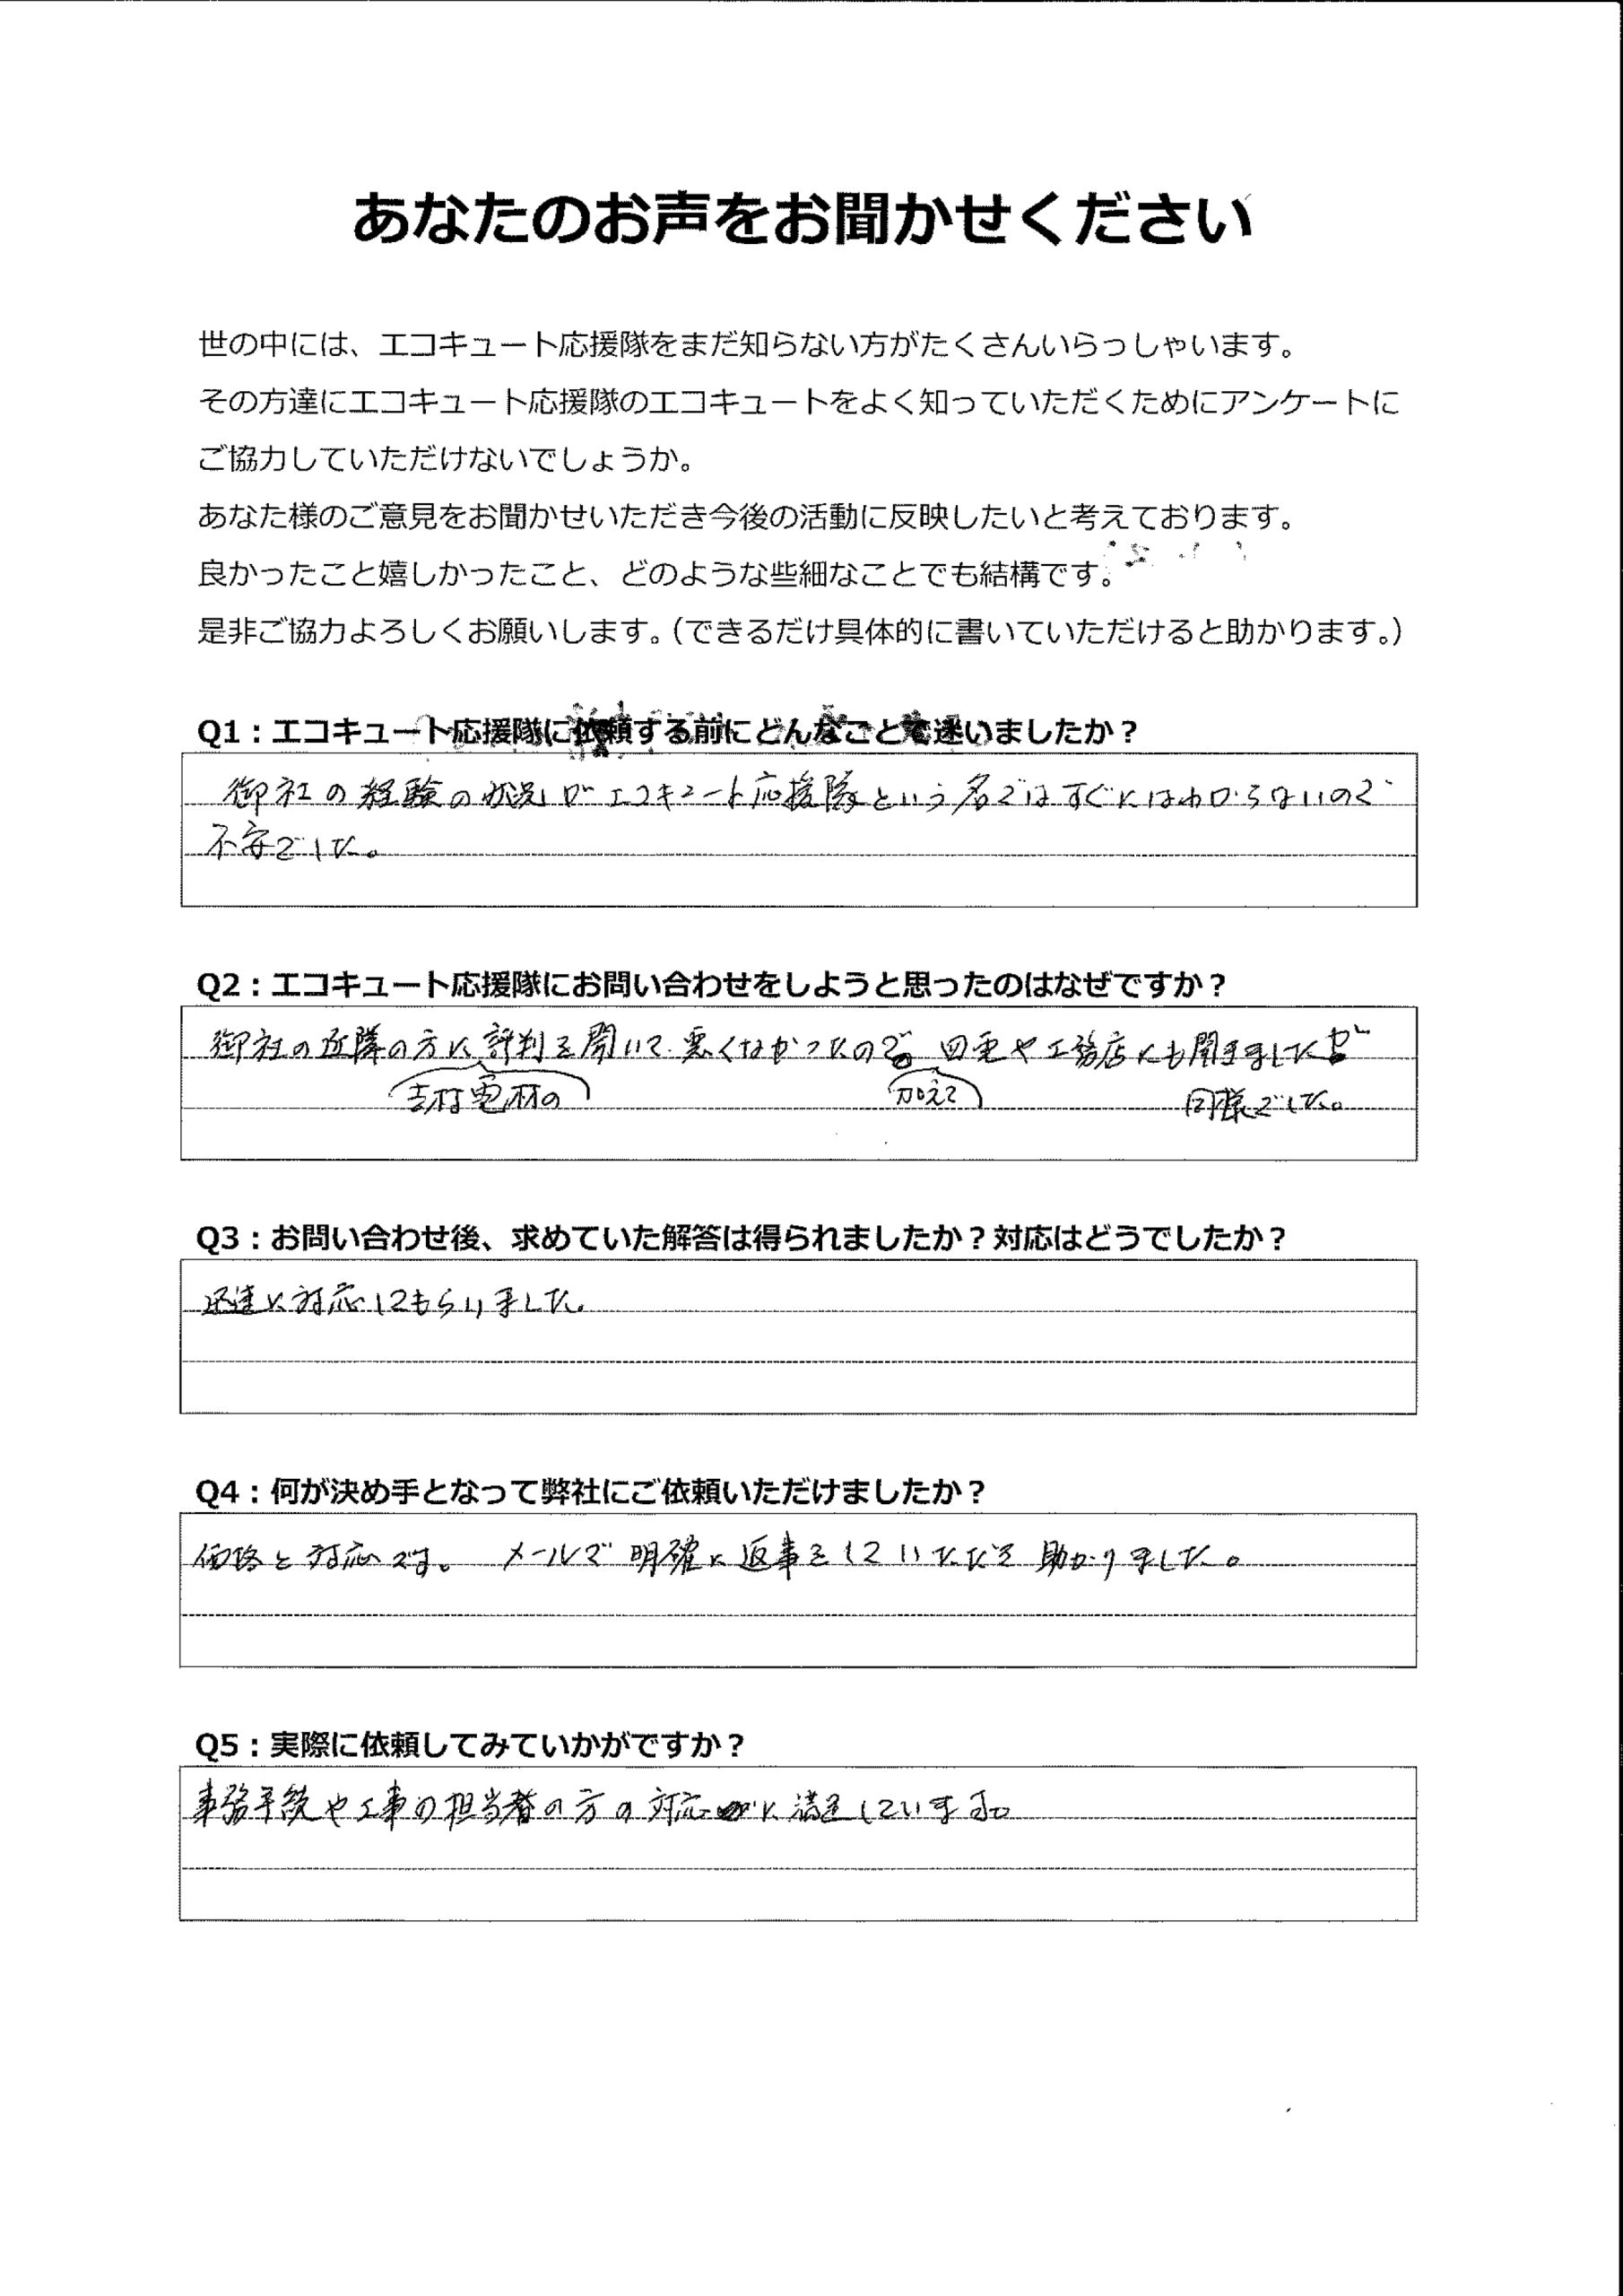 あなたのお声をお聞かせください
世の中には、エコキュート応援隊をまだ知らない方がたくさんいらっしゃいます。
その方達にエコキュート応援隊のエコキュートをよく知っていただくためにアンケートに
ご協力していただけないでしょうか。
あなた様のご意見をお聞かせいただき今後の活動に反映したいと考えております。
良かったこと嬉しかったこと、どのような些細なことでも結構です。
是非ご協力よろしくお願いします。（できるだけ具体的に書いていただけると助かります。）
Q1：エコキュート応援隊に依頼する前にどんなことで迷いましたか？
御社の経験の状況がエコキュート応援隊という名ではすぐにはわからないので
不安でした。
Q2：エコキュート応援隊にお問い合わせをしようと思ったのはなぜですか？
御社の近隣の方に評判を聞いて悪くなかったので 四電や工務店にも聞きましたが
吉村電材の 加えて 同様でした。
Q3：お問い合わせ後、求めていた解答は得られましたか？対応はどうでしたか？
迅速に対応してもらいました。
Q4：何が決め手となって弊社にご依頼いただけましたか？
価格と対応です。 メールで明確に返事をしていただき助かりました。
Q5：実際に依頼してみていかがですか？
事務手続や工事の担当者の方の対応に満足しています。